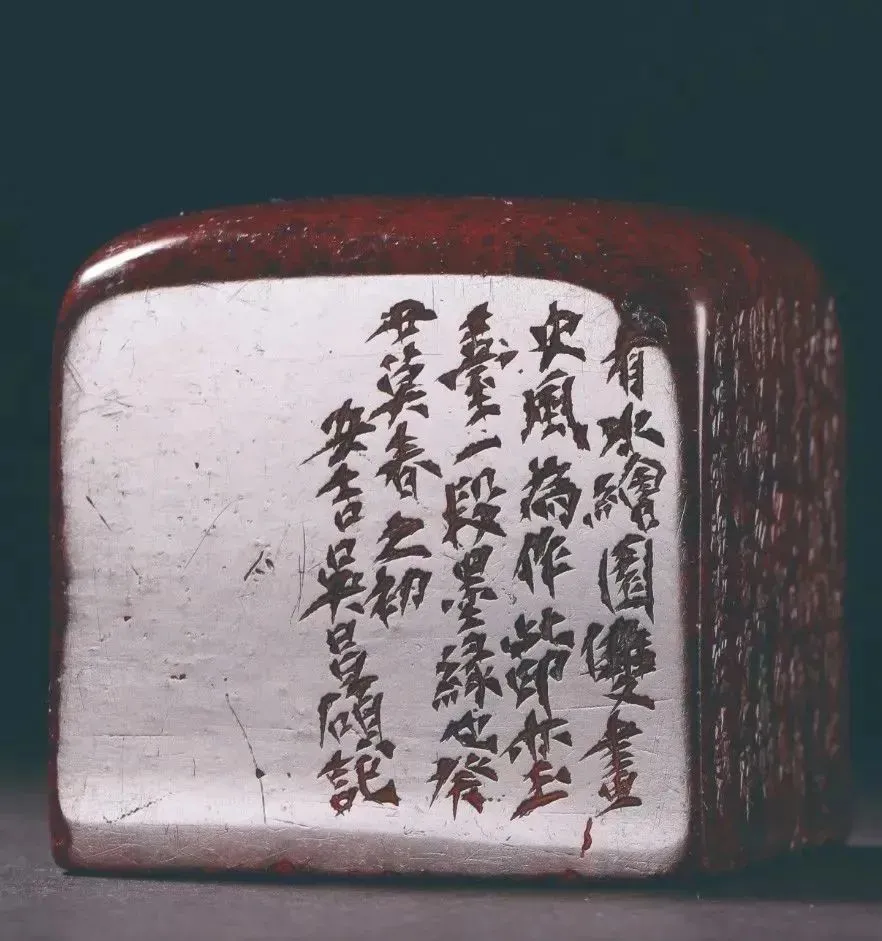 有水繪園雙畫
史風為作此印亦玉
臺一段墨緣也癸
丑莫春之初
安吉吳昌碩記